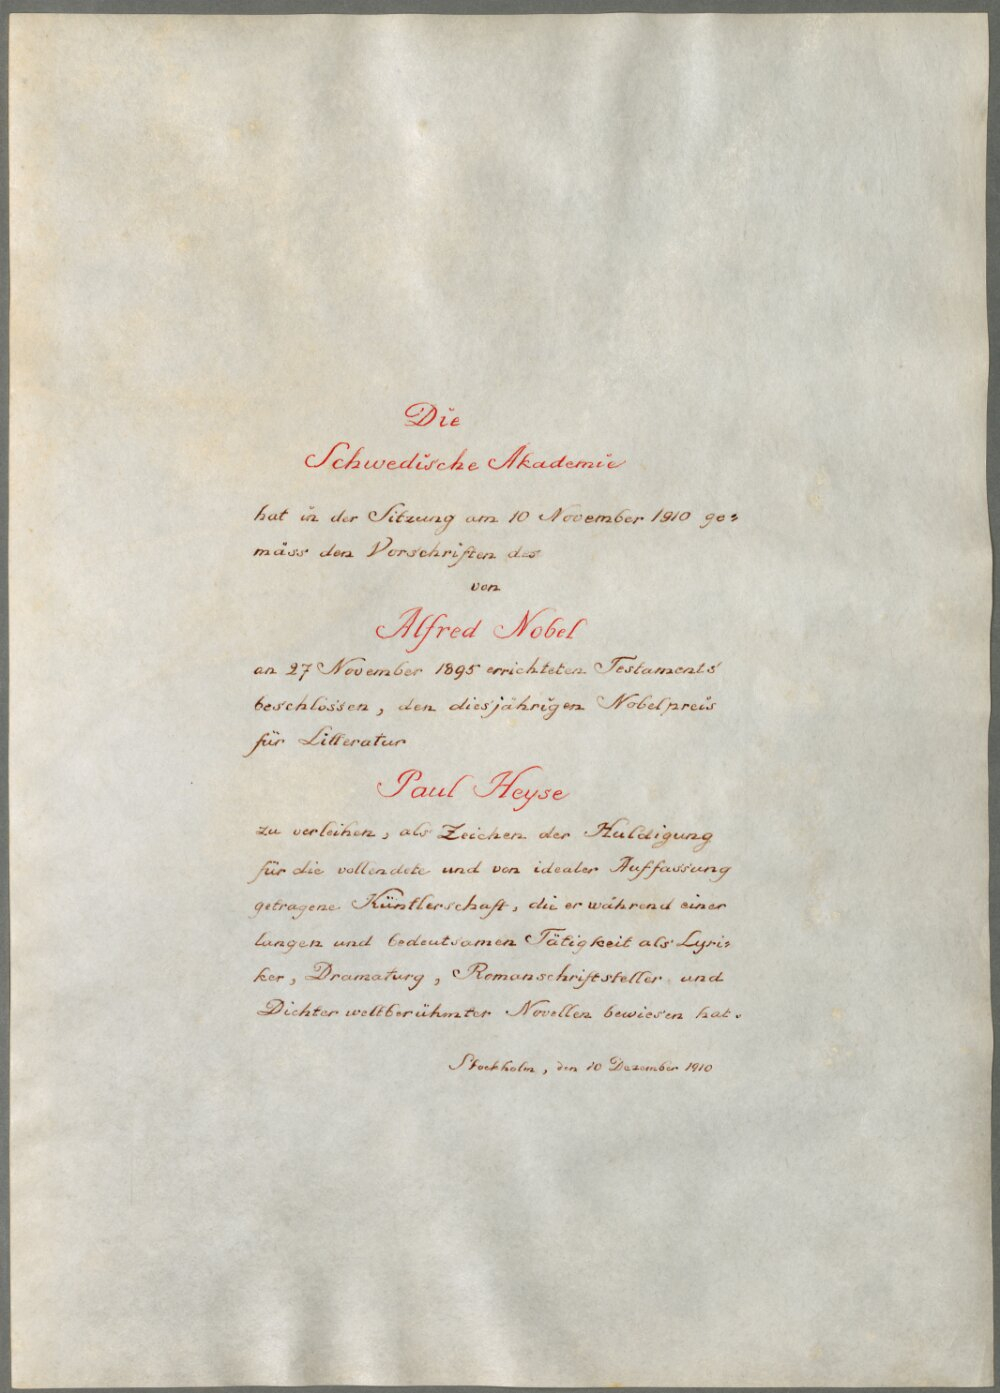 Die
Schwedische Akademie
hat in der Sitzung am 10 November 1910 ge=
mäss den Vorschriften des
von
Alfred Nobel
an 27 November 1895 errichteten Testaments
beschlossen, den diesjährigen Nobelpreis
für Litteratur
Paul Heyse
zu verleihen, als Zeichen der Huldigung
für die vollendete und von idealer Auffassung
getragene Küntlerschaft, die er während einer
langen und bedeutsamen Tätigkeit als Lyri=
ker, Dramaturg, Romanschriftsteller und
Dichter weltberühmter Novellen bewiesen hat.
Stockholm, den 10 Dezember 1910